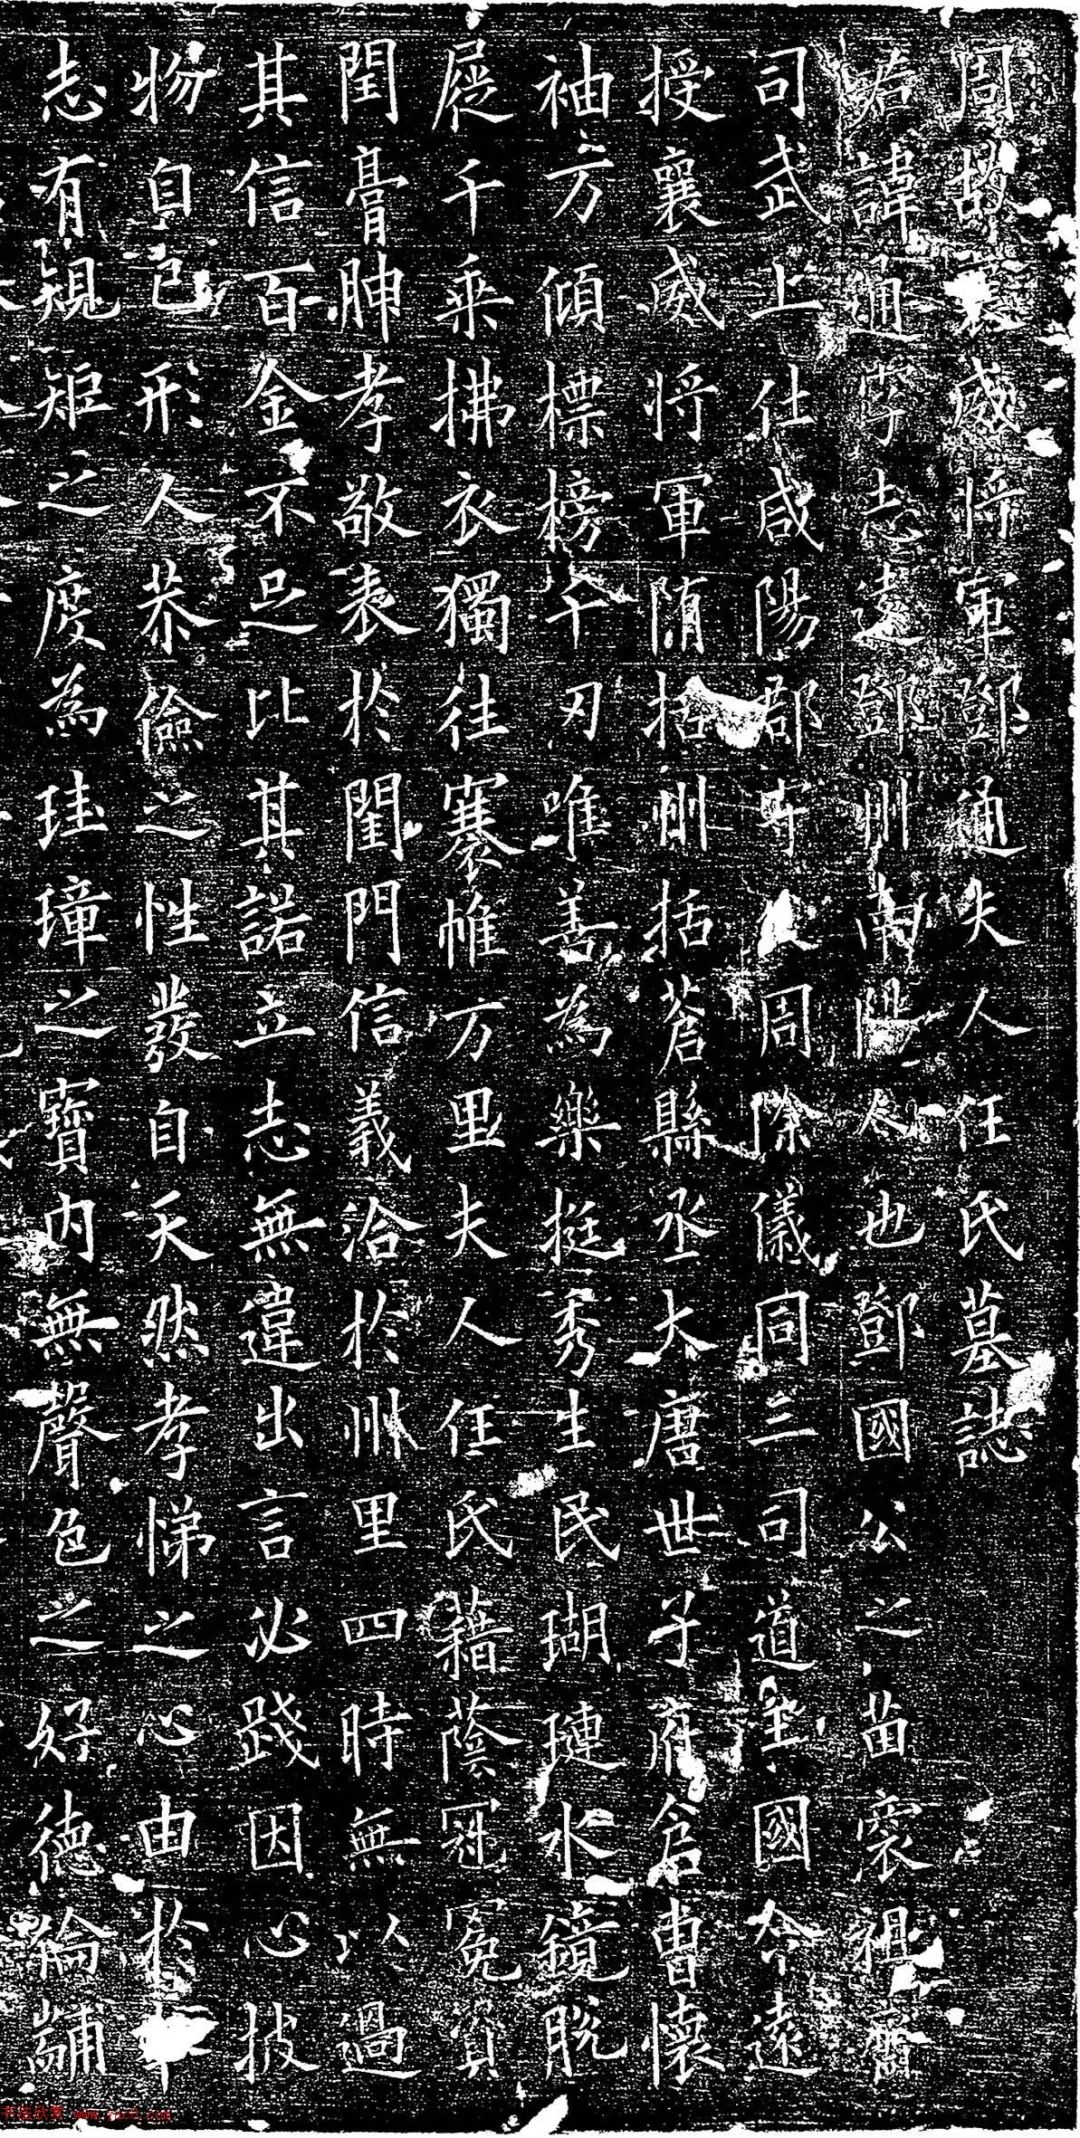 周故襄威将軍鄧通夫人任氏墓誌
君諱通字志遠鄧州南陽人也鄧國公之苗裔祖齊
司武上仕咸陽郡守父周除儀同三司道聖國令遠
授襄威将軍隋括州括蒼縣丞大唐世子府倉曹懷
袖方傾標榜千刃唯善為樂挺秀生民瑚璉水鏡脱
屣千乘拂衣獨往褰帷方里夫人任氏藉蔭冠冕質
閏膏腴孝敬表於閨門信義洽於州里四時無以過
其信百金不足比其諾立志無違出言必踐因心披
物自己形人恭儉之性發自天然孝悌之心由於
志有規矩之度為珪璋之寶内無聲色之好德綸黼
www.yac8.com